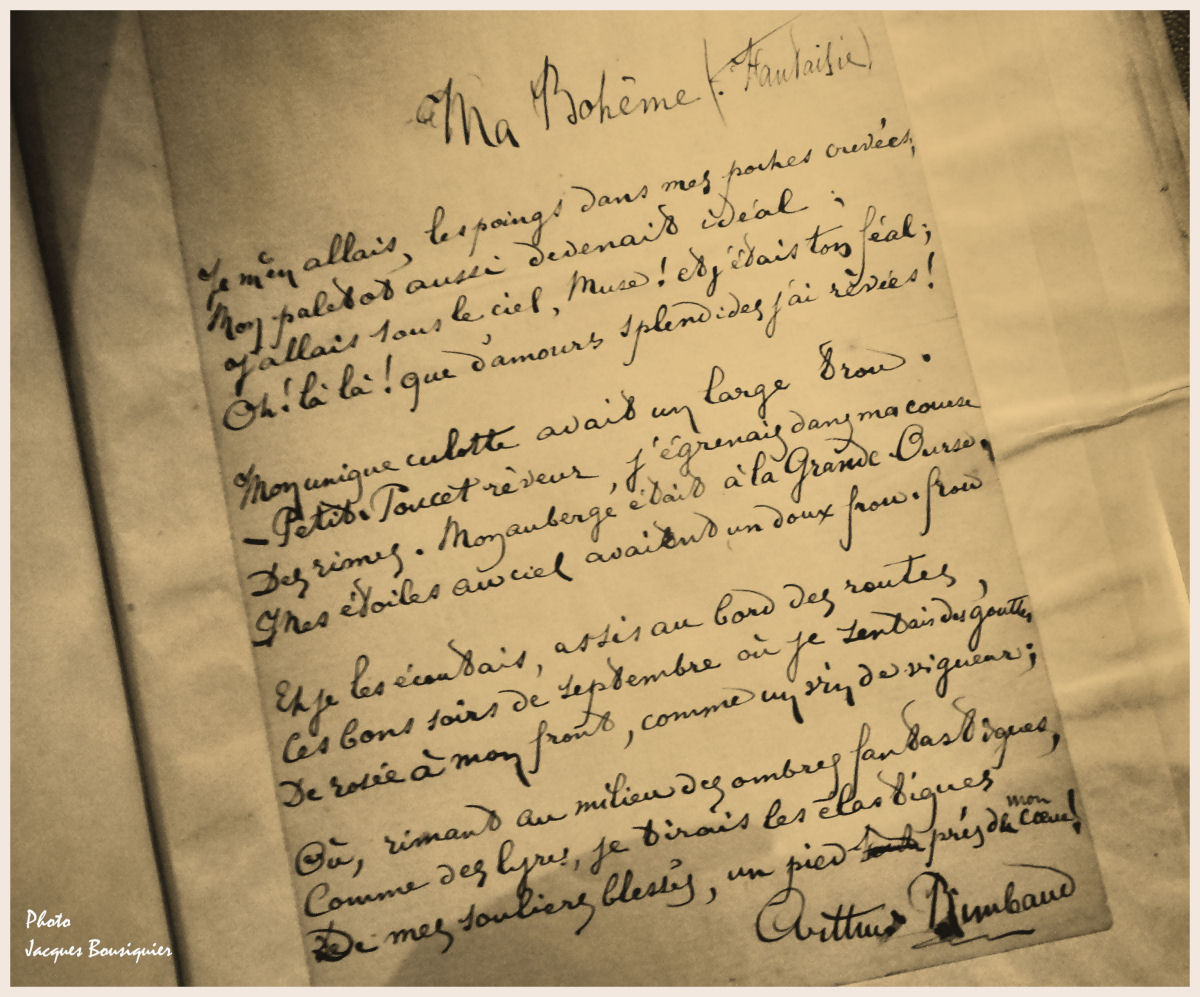 Ma Bohême (Fantaisie)
Je m'en allais, les poings dans mes poches crevées,
Mon paletot aussi devenait idéal ;
J'allais sous le ciel, Muse ! et j'étais ton féal ;
Oh ! là là ! que d'amours splendides j'ai rêvées !
Mon unique culotte avait un large trou.
– Petit-Poucet rêveur, j'égrenais dans ma course
Des rimes. Mon auberge était à la Grande-Ourse.
Mes étoiles au ciel avaient un doux frou-frou
Et je les écoutais, assis au bord des routes,
Ces bons soirs de septembre où je sentais des gouttes
De rosée à mon front, comme un vin de vigueur ;
Où, rimant au milieu des ombres fantastiques,
Comme des lyres, je tirais les élastiques
De mes souliers blessés, un pied près de mon cœur !
Arthur Rimbaud
Photo
Jacques Bousiquier